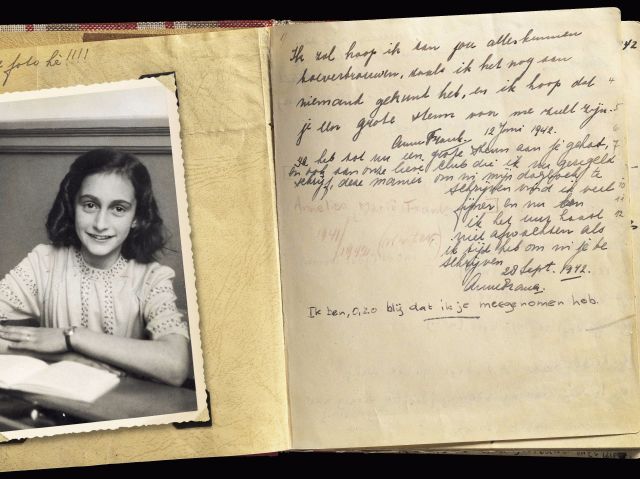 foto hè!!!!
Ik zal hoop ik aan jou alles kunnen
toevertrouwen, zoals ik het nog aan
niemand gekund heb, en ik hoop dat
je een grote steun van me zult zijn.
Anne Frank. 12 Juni 1942.
Ik heb tot nu een grote steun aan je gehad,
en ook aan onze lieve club die ik nu geregeld
schrijf, deze manier om in mijn dagboek te
schrijven vind ik veel
fijner en nu kan
ik het uur haast
niet afwachten als
ik tijd heb om in je te
schrijven.
28 Sept. 1942.
Anne Frank.
Ik ben, O, zo blij dat ik je meegenomen heb.
Annelies Marie Frank
1941
1942
942
4
5
6
7
10
11
12